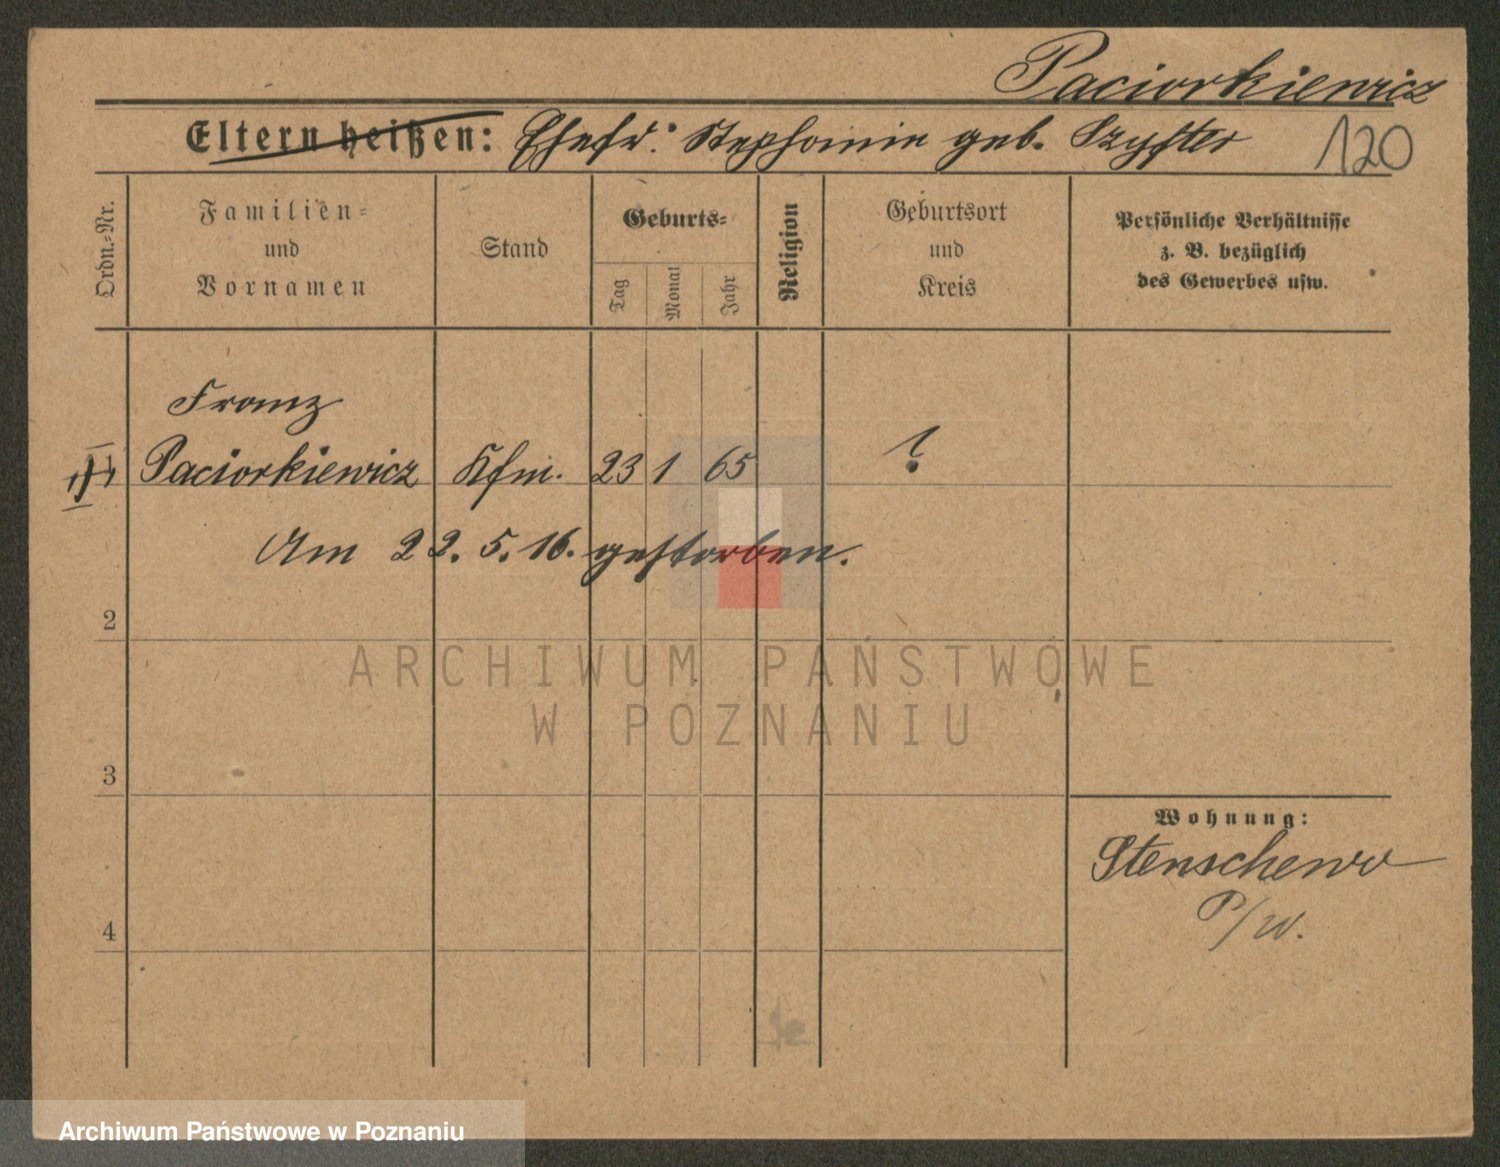 Paciorkiewicz
Eltern heißen: Ehefr. Stephanie geb. Szyfter 120
Ordn.-Nr.
Familien-
und
Vornamen
Stand
Geburts-
Tag
Monat
Jahr
Religion
Geburtsort
und
Kreis
Persönliche Verhältnisse
z. B. bezüglich
des Gewerbes usw.
Franz
Paciorkiewicz Kfm. 23 1 65 ?
Am 22. 5. 16. gestorben.
2
ARCHIWUM PAŃSTWOWE
W POZNANIU
3
Wohnung:
Stenschewo
P/W.
4
Archiwum Państwowe w Poznaniu